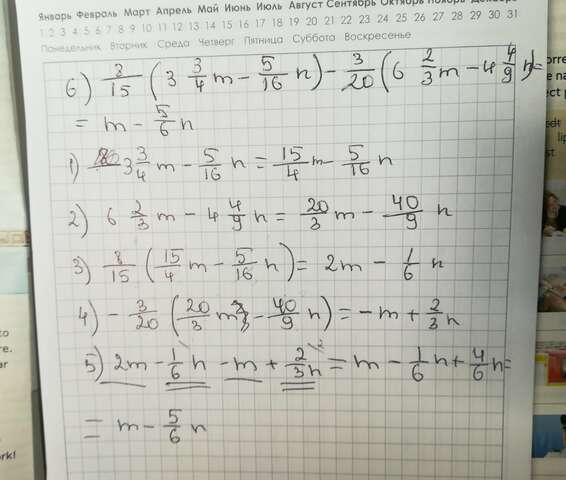 Январь Февраль Март Апрель Май Июнь Июль Август Сентябрь Октябрь Ноябрь Декабрь
1 2 3 4 5 6 7 8 9 10 11 12 13 14 15 16 17 18 19 20 21 22 23 24 25 26 27 28 29 30 31
Понедельник Вторник Среда Четверг Пятница Суббота Воскресенье
6) 8/15 (3 3/4 m - 5/16 n) - 3/20 (6 2/3 m - 4 4/9 n) =
= m - 5/6 n
1) 3 3/4 m - 5/16 n = 15/4 m - 5/16 n
2) 6 2/3 m - 4 4/9 n = 20/3 m - 40/9 n
3) 8/15 (15/4 m - 5/16 n) = 2m - 1/6 n
4) - 3/20 (20/3 m - 40/9 n) = -m + 2/3 n
5) 2m - 1/6 n - m + 2/3 n = m - 1/6 n + 4/6 n =
= m - 5/6 n